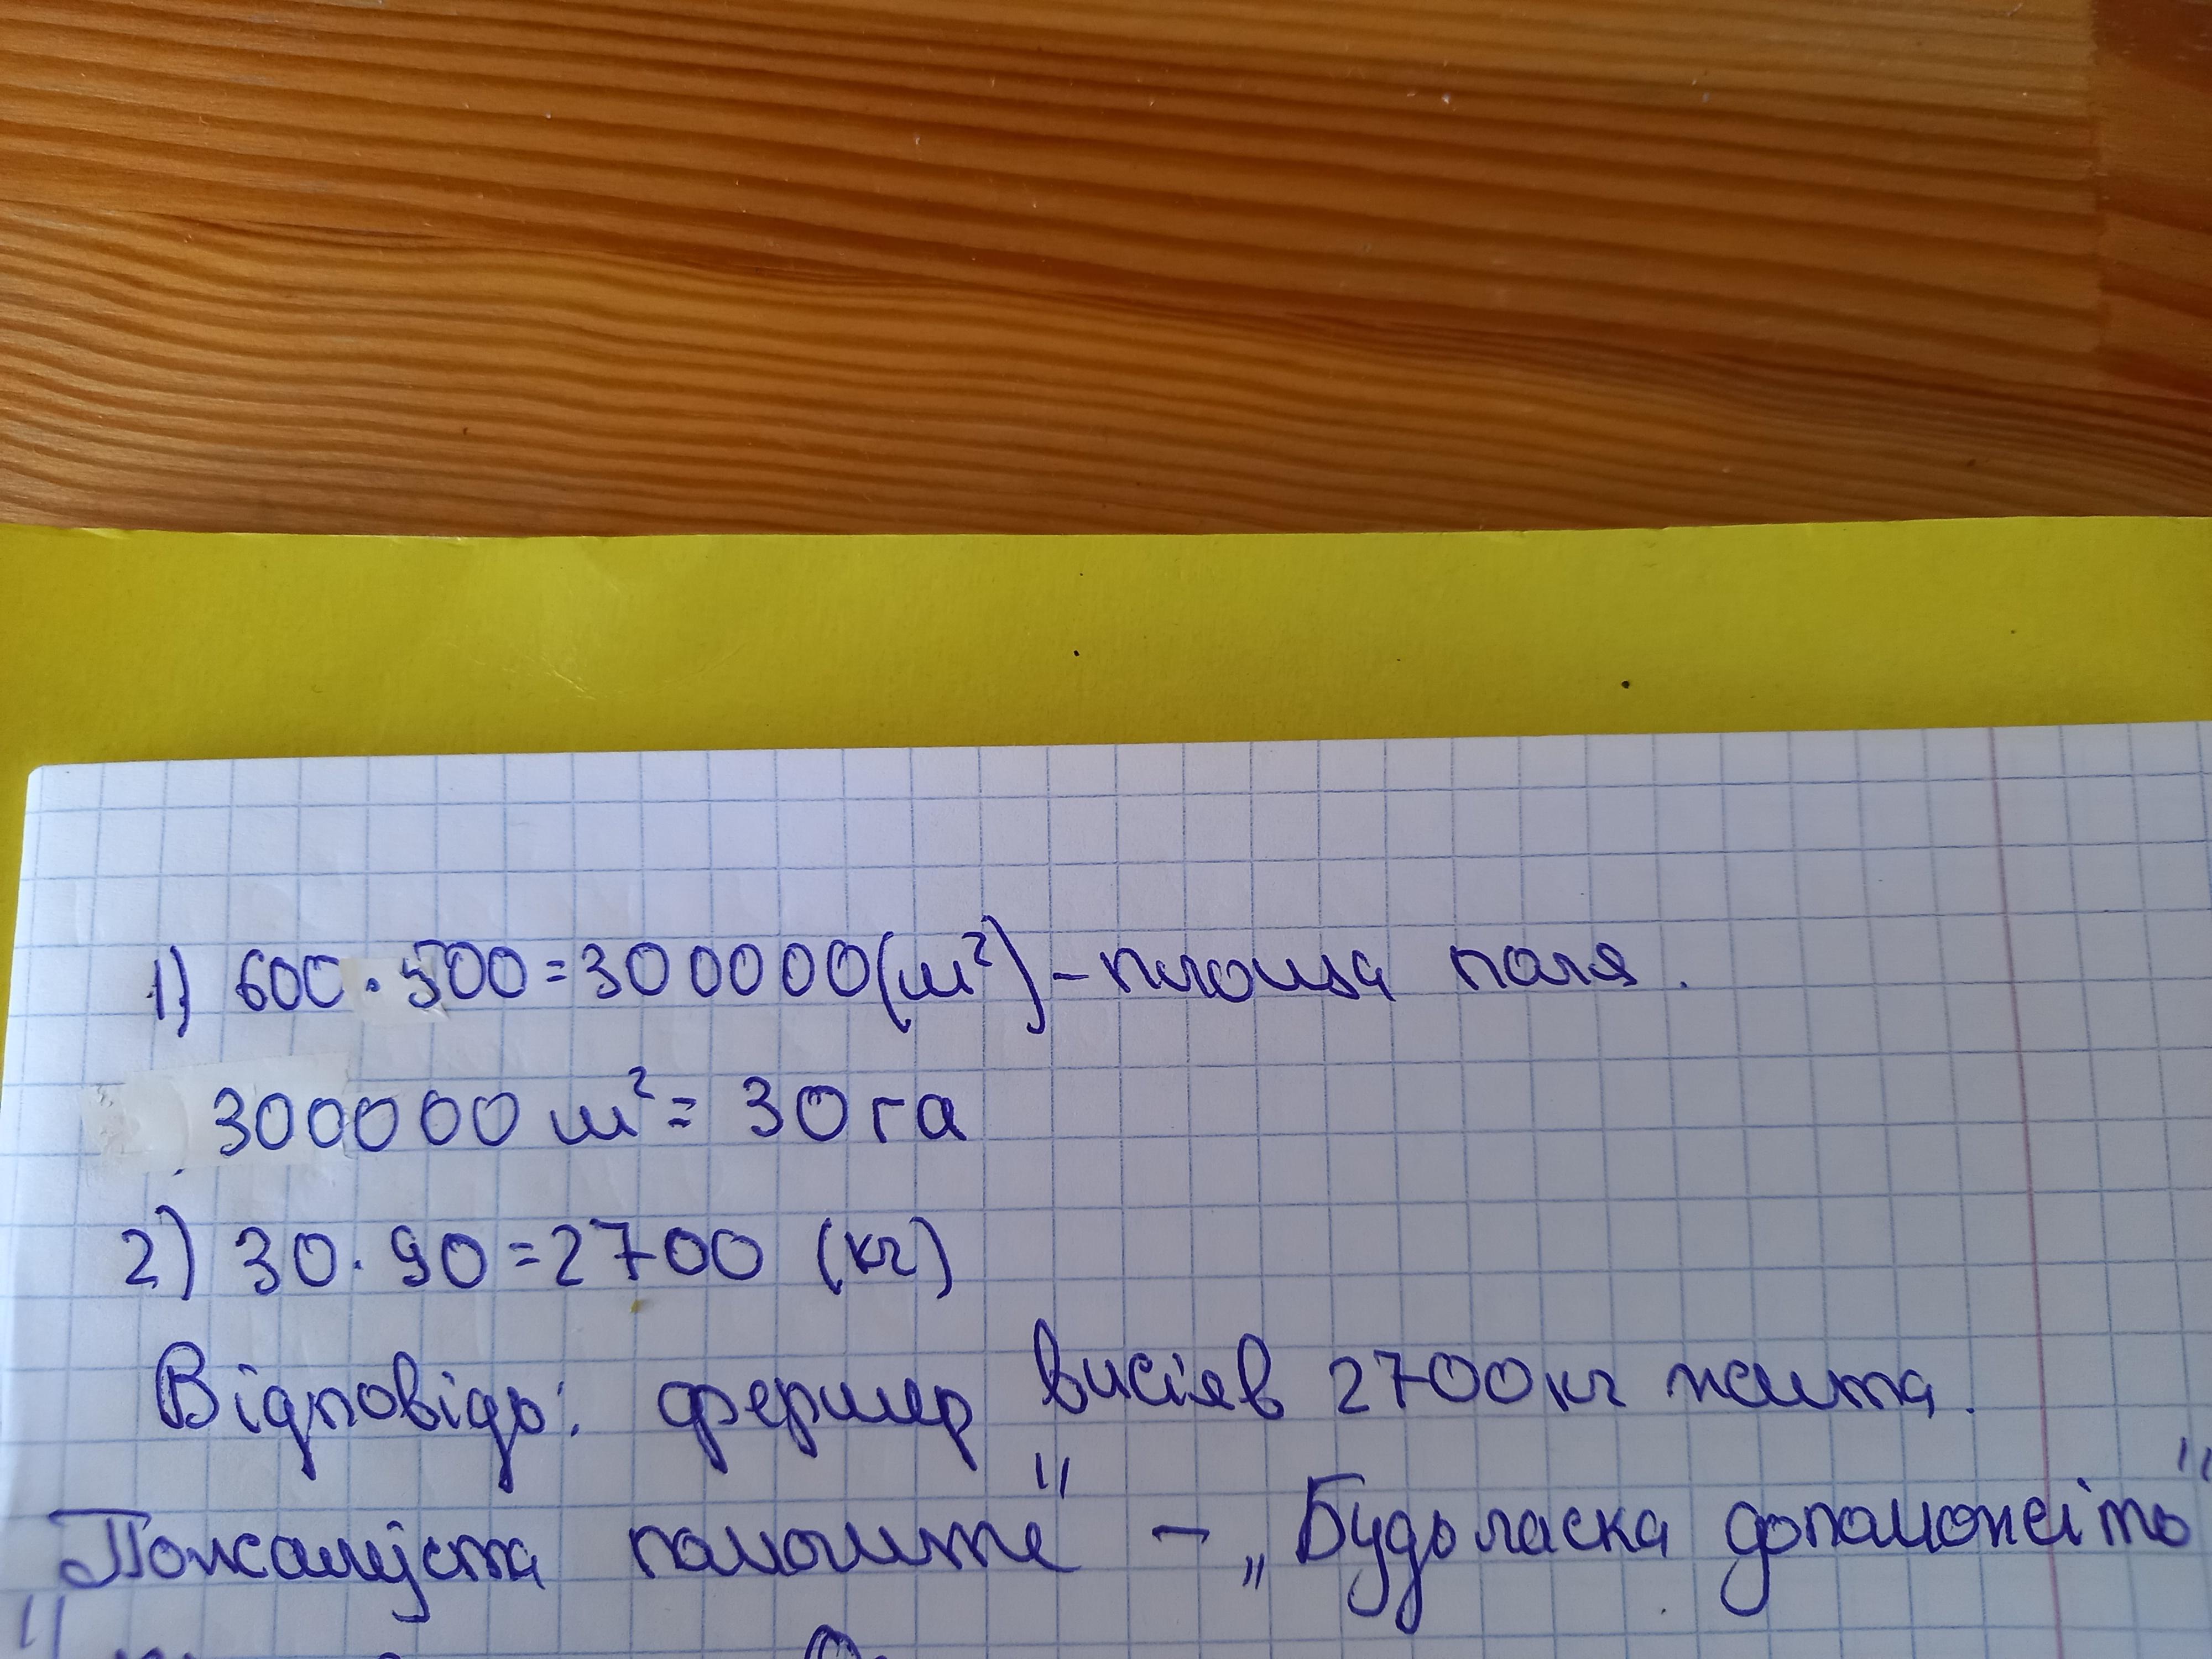 1) 600 · 500 = 300000 (м²) – площа поля.
300000 м² = 30 га
2) 30 · 90 = 2700 (кг)
Відповідь: фермер висіяв 2700 кг жита.
"Пожалуйста помогите" – „Будьласка допоможіть"